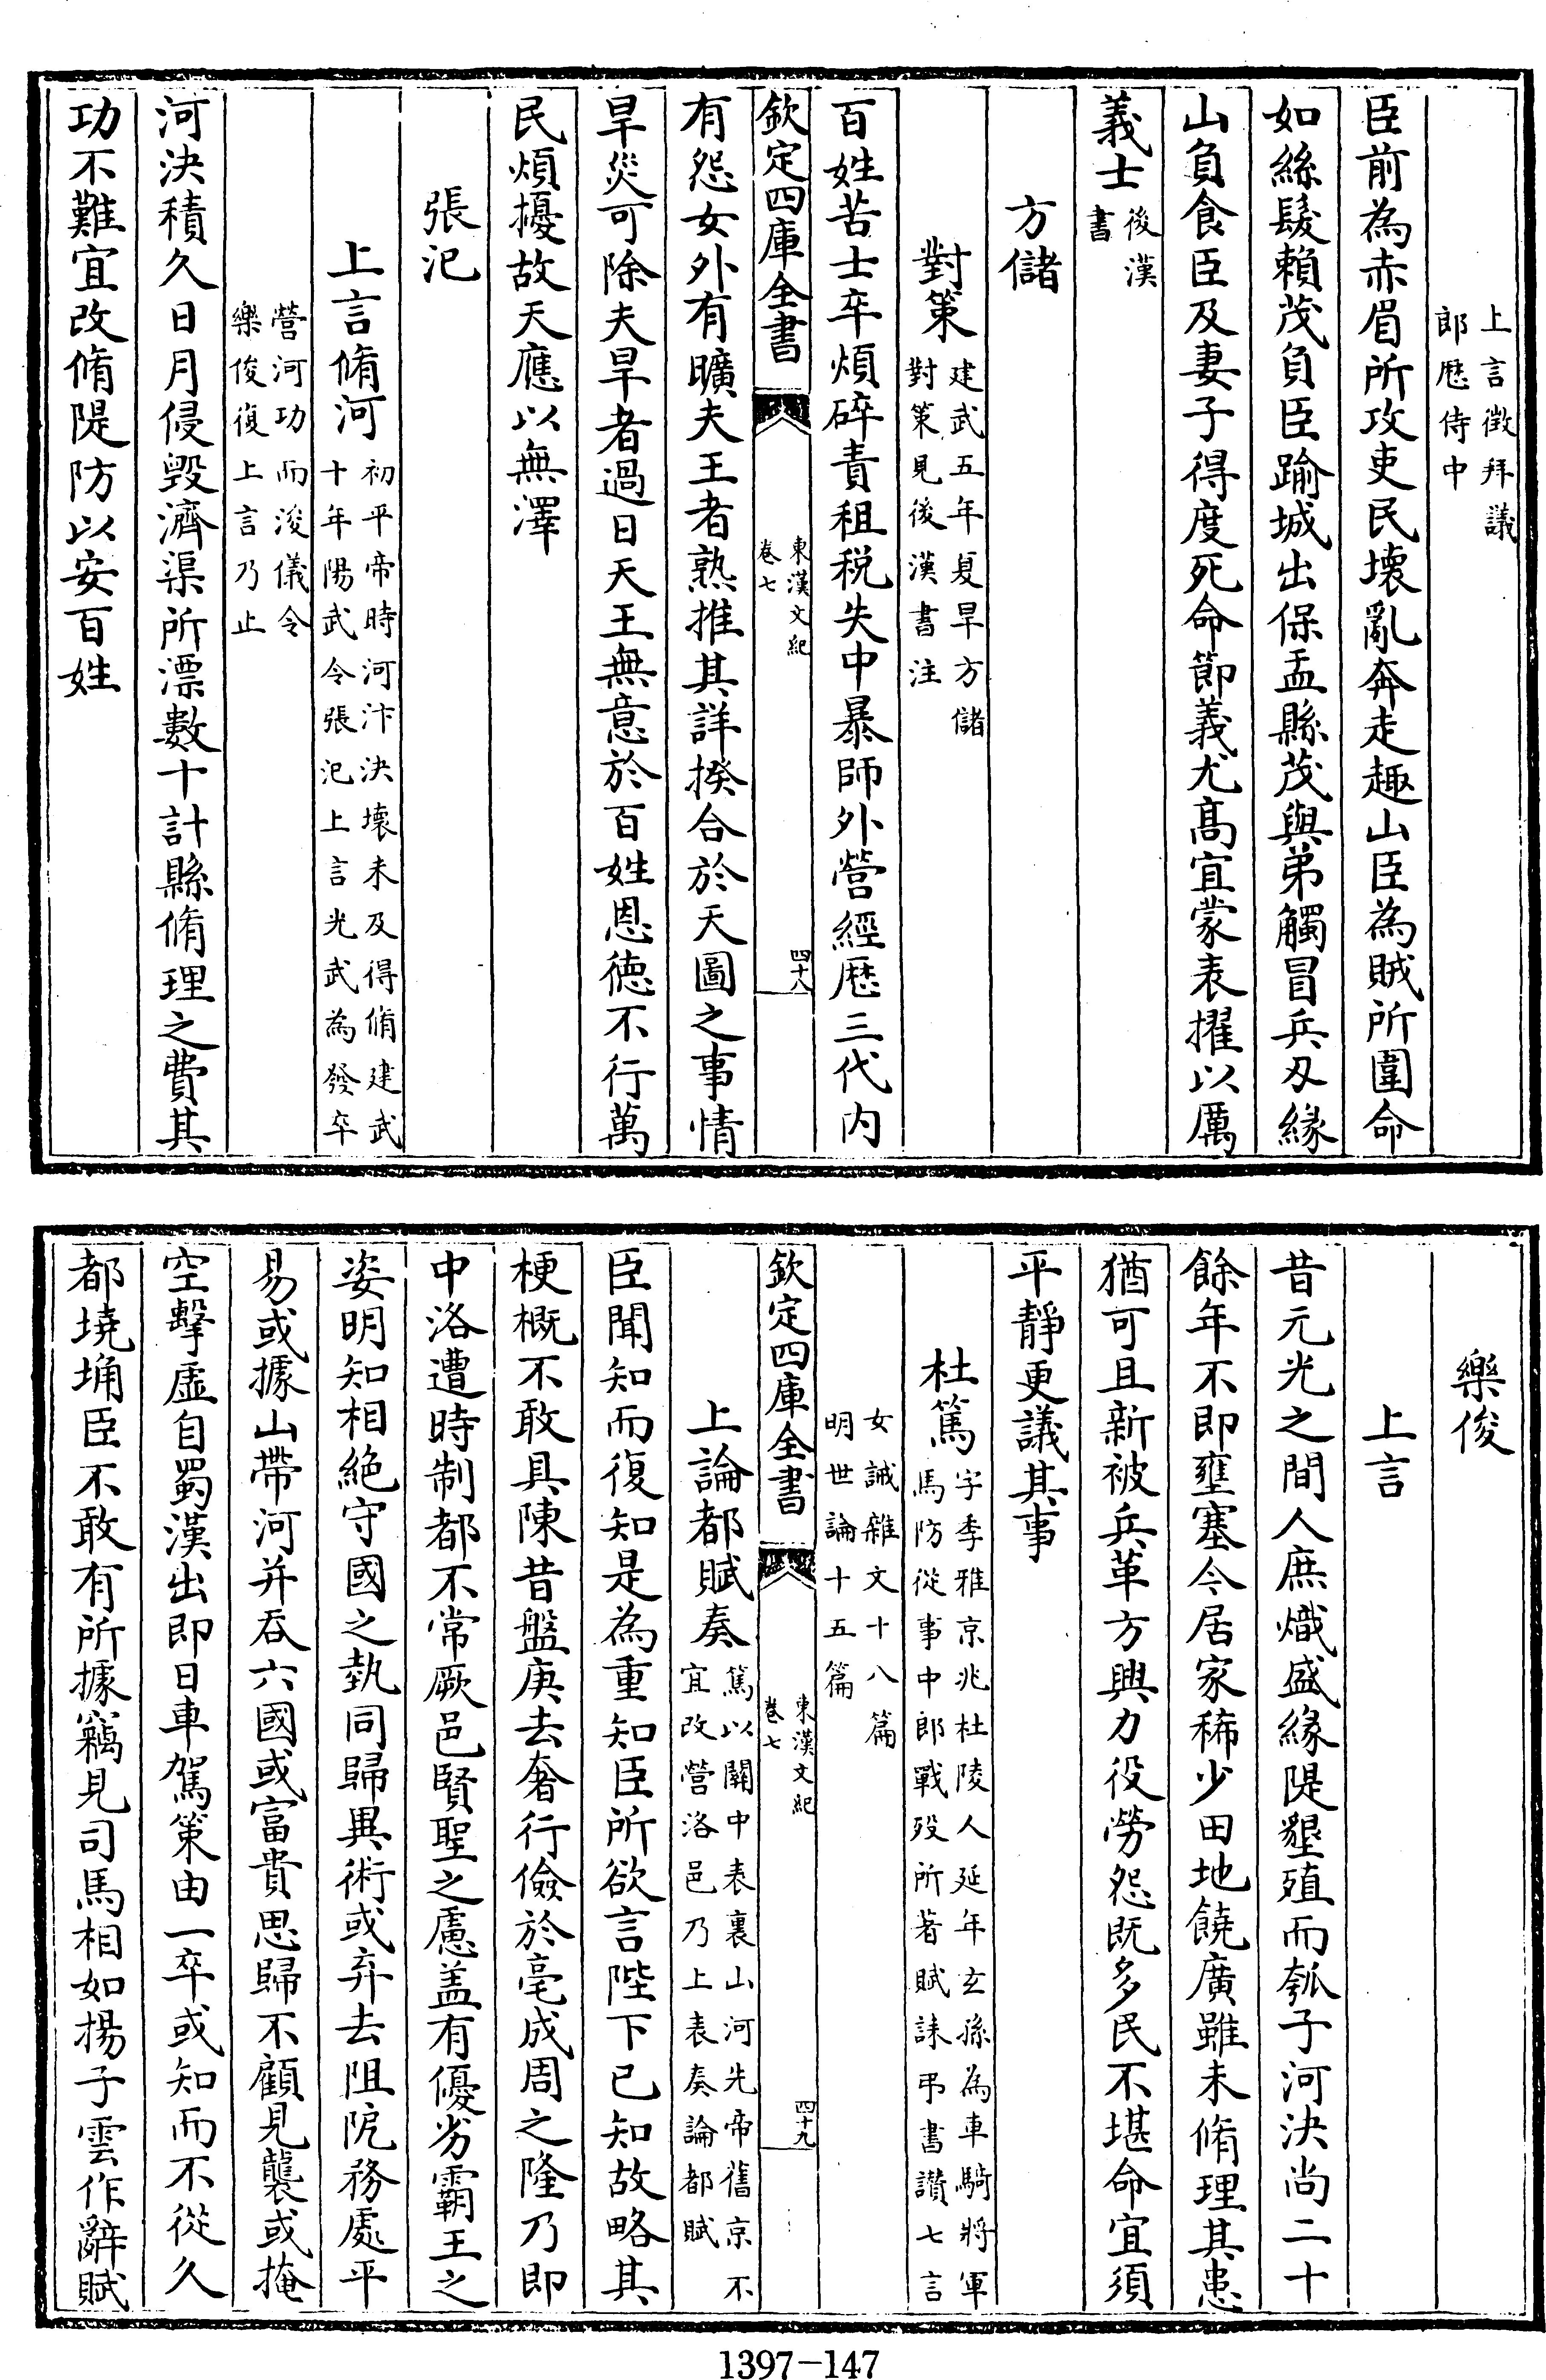 上言徴拜議
郎歴侍中
臣前為赤眉所攻吏民壊亂奔走趣山臣為賊所圍命
如絲髮賴茂負臣踰城出保盂縣茂與弟觸冒兵刃縁
山負食臣及妻子得度死命節義尤髙宜蒙表擢以厲
義士後漢
書
方儲
對策建武五年夏旱方儲
對策見後漢書注
百姓苦士卒煩碎責租税失中暴師外營經歴三代内
欽定四庫全書
東漢文紀
卷七
四十八
有怨女外有曠夫王者熟推其詳揆合於天圖之事情
旱災可除夫旱者過日天王無意於百姓恩徳不行萬
民煩擾故天應以無澤
張汜
上言脩河初平帝時河汴決壊未及得脩建武
十年陽武令張汜上言光武為發卒
營河功而浚儀令
樂俊復上言乃止
河決積久日月侵毁濟渠所漂數十計縣脩理之費其
功不難宜改脩隄防以安百姓
樂俊
上言
昔元光之間人庶熾盛縁隄墾殖而瓠子河決尚二十
餘年不即壅塞今居家稀少田地饒廣雖未脩理其患
猶可且新被兵革方興力役勞怨既多民不堪命宜須
平靜更議其事
杜篤字季雅京兆杜陵人延年玄孫為車騎將軍
馬防從事中郎戰歿所著賦誄弔書讚七言
女誡雜文十八篇
明世論十五篇
欽定四庫全書
東漢文紀
卷七
四十九
上論都賦奏篤以關中表裏山河先帝舊京不
宜改營洛邑乃上表奏論都賦
臣聞知而復知是為重知臣所欲言陛下已知故略其
梗概不敢具陳昔盤庚去奢行儉於亳成周之隆乃即
中洛遭時制都不常厥邑賢聖之慮盖有優劣霸王之
姿明知相絶守國之埶同歸異術或弃去阻阨務處平
易或據山帶河并吞六國或富貴思歸不顧見襲或掩
空擊虛自蜀漢出即日車駕策由一卒或知而不從久
都墝埆臣不敢有所據竊見司馬相如揚子雲作辭賦
1397-147